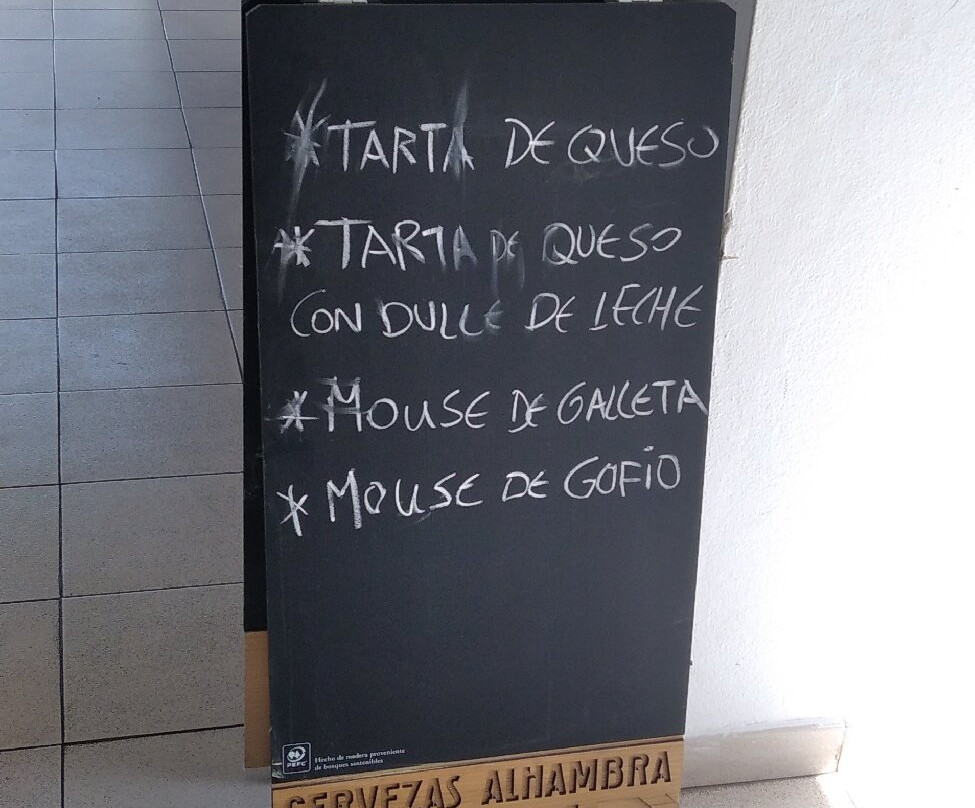 * TARTA DE QUESO
* TARTA DE QUESO
CON DULCE DE LECHE
* MOUSE DE GALLETA
* MOUSE DE GOFIO
PEFC
Hecho de madera proveniente
de bosques sostenibles
CERVEZAS ALHAMBRA